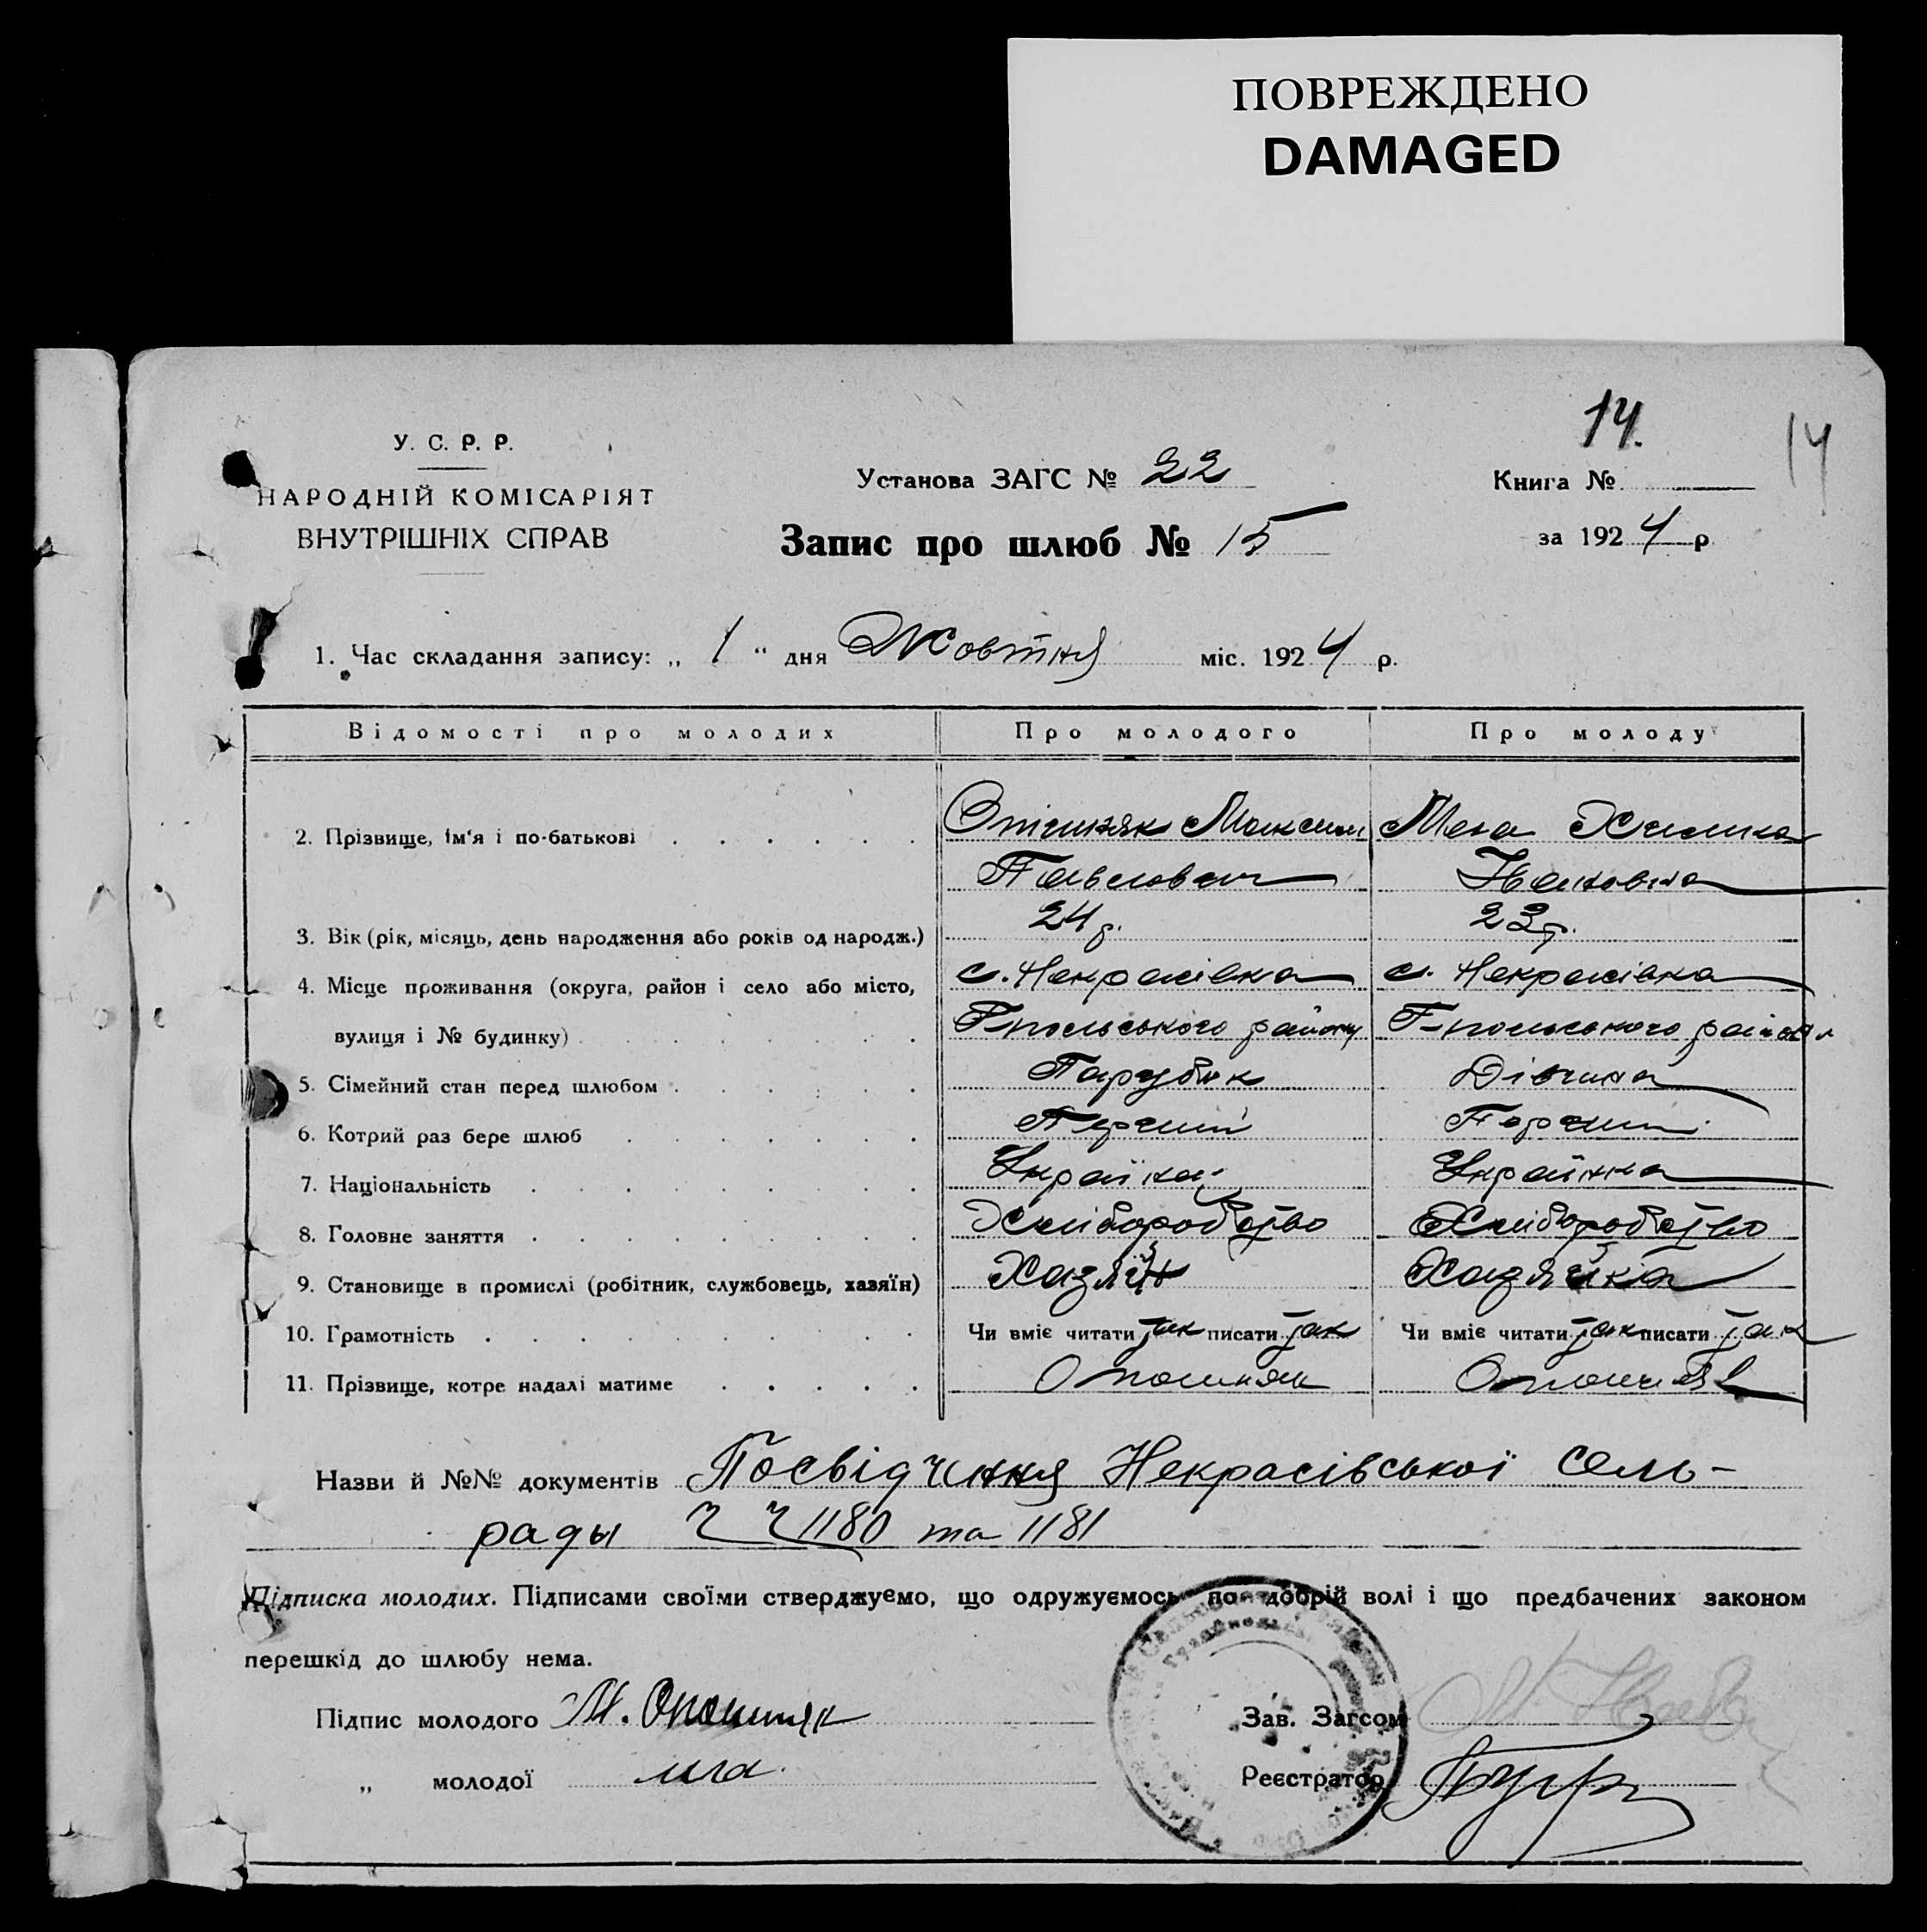 ПОВРЕЖДЕНО
DAMAGED
14.
14
У. С. Р. Р.
НАРОДНІЙ КОМІСАРІЯТ
ВНУТРІШНІХ СПРАВ
Установа ЗАГС № 22
Книга №
Запис про шлюб № 15
за 1924 р
1. Час складання запису: „ 1 “ дня Жовтня міс. 1924 р.
Відомості про молодих Про молодого Про молоду
2. Прізвище, ім'я і по-батькові Опішняк Максим Мека Химка
Павлович Івановна
3. Вік (рік, місяць, день народження або років од народж.) 24 р. 23 р.
4. Місце проживання (округа, район і село або місто, с. Некрасівка с. Некрасівка
вулиця і № будинку) району району
5. Сімейний стан перед шлюбом Парубок Дівчина
6. Котрий раз бере шлюб Перший Перший
7. Національність Українка
8. Головне заняття Хліборобство Хліборобство
9. Становище в промислі (робітник, службовець, хазяїн) Хазяїн Хазяйка
10. Грамотність Чи вміє читати так писати так Чи вміє читати так писати так
11. Прізвище, котре надалі матиме Опошняк Опошняк
Назви й №№ документів Посвідчення Некрасівської сель-
рады ч ч 1180 та 1181
Підписка молодих. Підписами своїми стверджуємо, що одружуємось по добрій волі і що предбачених законом
перешкід до шлюбу нема.
Підпис молодого М. Опошняк
Зав. Загсом
„ молодої
Реєстратор